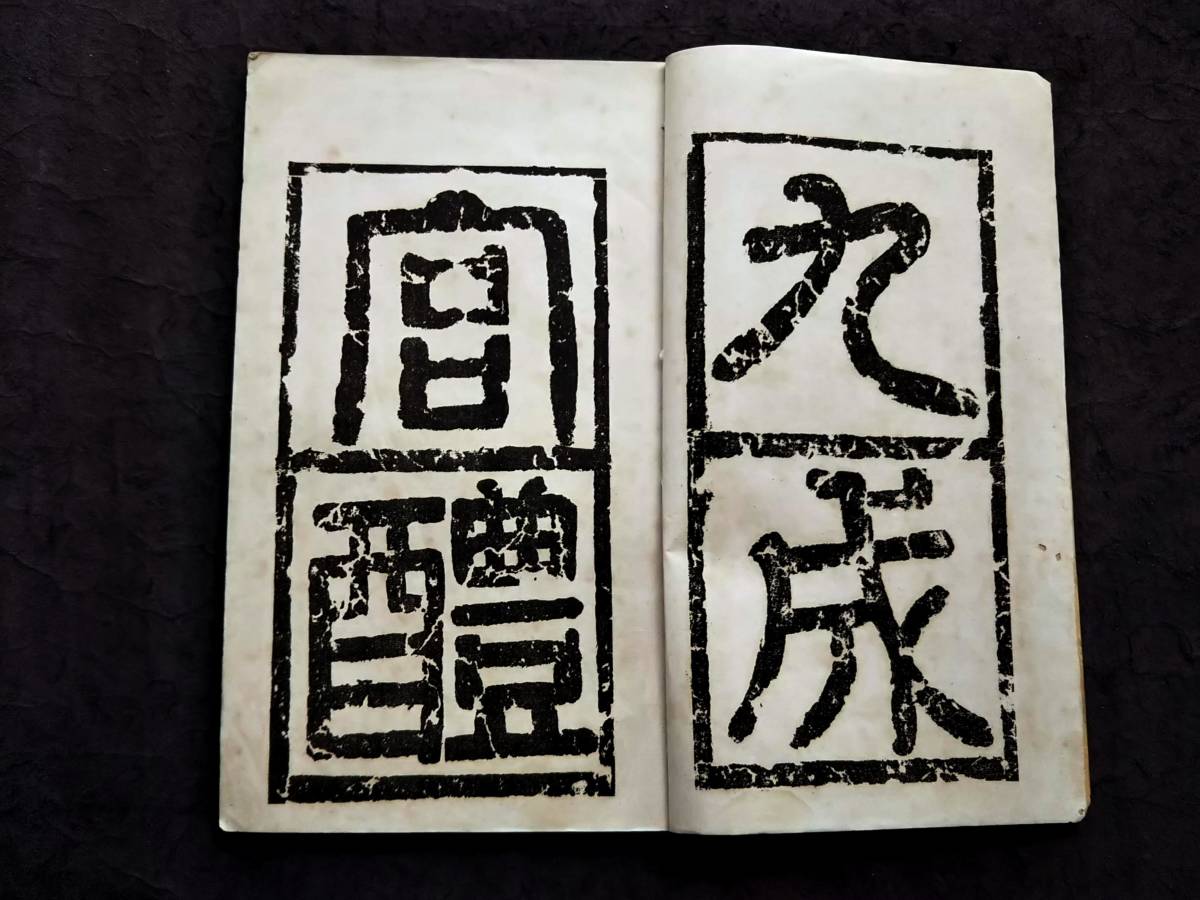 九成
宮醴